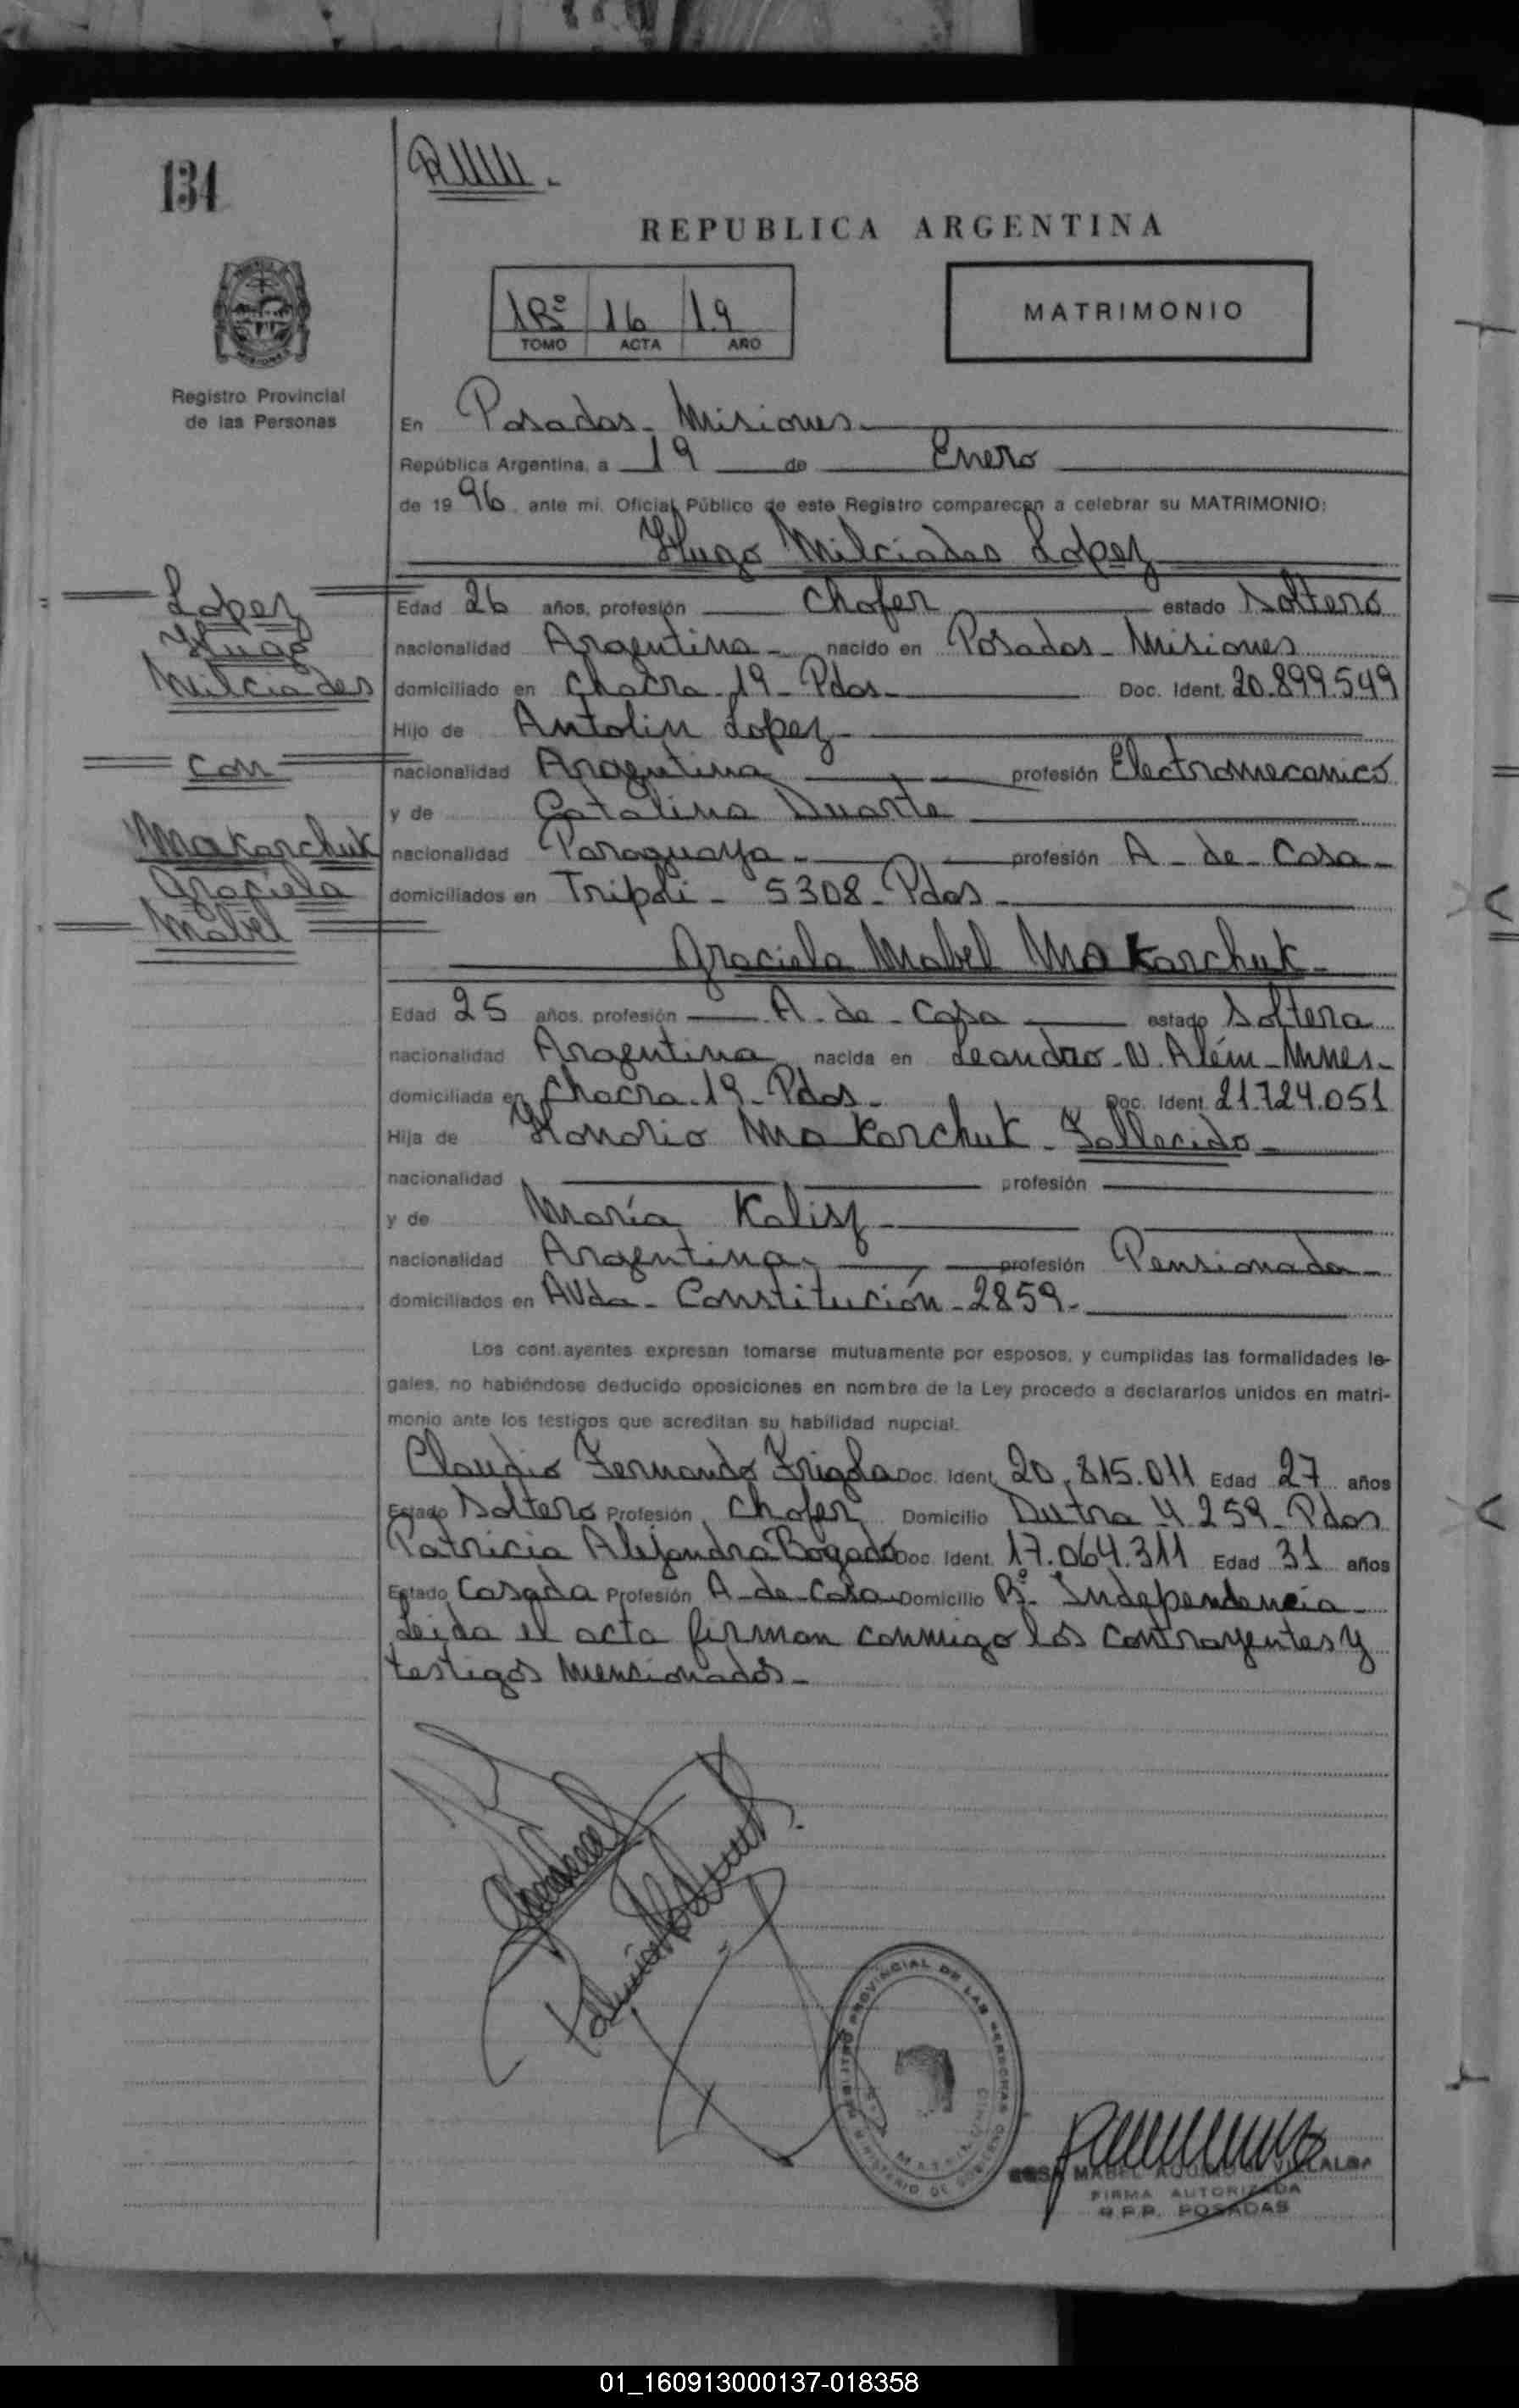 134
REPUBLICA ARGENTINA
1Bº 16 19
TOMO ACTA AÑO
MATRIMONIO
Registro Provincial
de las Personas
En Posadas - Misiones
República Argentina, a 19 de Enero
de 1996, ante mi, Oficial Público de este Registro comparecen a celebrar su MATRIMONIO:
Hugo Milciades Lopez
Lopez
Hugo
Milciades
con
Makarchuk
Graciela
Mabel
Edad 26 años, profesión Chofer estado Soltero
nacionalidad Argentina - nacido en Posadas - Misiones
domiciliado en Chacra 19 - Pdas - Doc. Ident. 20.899.549
Hijo de Antolin Lopez -
nacionalidad Argentina profesión Electromecanico
y de Catalina Duarte
nacionalidad Paraguaya - profesión A - de - Casa -
domiciliados en Tripoli - 5308 - Pdas -
Graciela Mabel Makarchuk -
Edad 25 años, profesión A - de - Casa estado Soltera
nacionalidad Argentina nacida en Leandro - N. Além - Mnes -
domiciliada en Chacra - 19 - Pdas - Doc. Ident. 21.724.051
Hija de Honorio Makarchuk - Fallecido -
nacionalidad profesión
y de María Kalisz -
nacionalidad Argentina - profesión Pensionada -
domiciliados en Avda - Constitución - 2859 -
Los cont.ayentes expresan tomarse mutuamente por esposos, y cumplidas las formalidades le-
gales, no habiéndose deducido oposiciones en nombre de la Ley procedo a declararlos unidos en matri-
monio ante los testigos que acreditan su habilidad nupcial.
Claudio Fernando Frigola Doc. Ident. 20.815.011 Edad 27 años
Estado Soltero Profesión Chofer Domicilio Dutra 4.259 - Pdas
Patricia Alejandra Bogado Doc. Ident. 17.064.311 Edad 31 años
Estado Casada Profesión A - de - Casa - Domicilio Bº - Independencia -
Leida el acta firman conmigo los contrayentes y
testigos mencionados -
REGISTRO PROVINCIAL DE LAS PERSONAS
MINISTERIO DE GOBIERNO
ROSA MABEL AQUINO DE VILLALBA
FIRMA AUTORIZADA
R.P.P. POSADAS
01_160913000137-018358